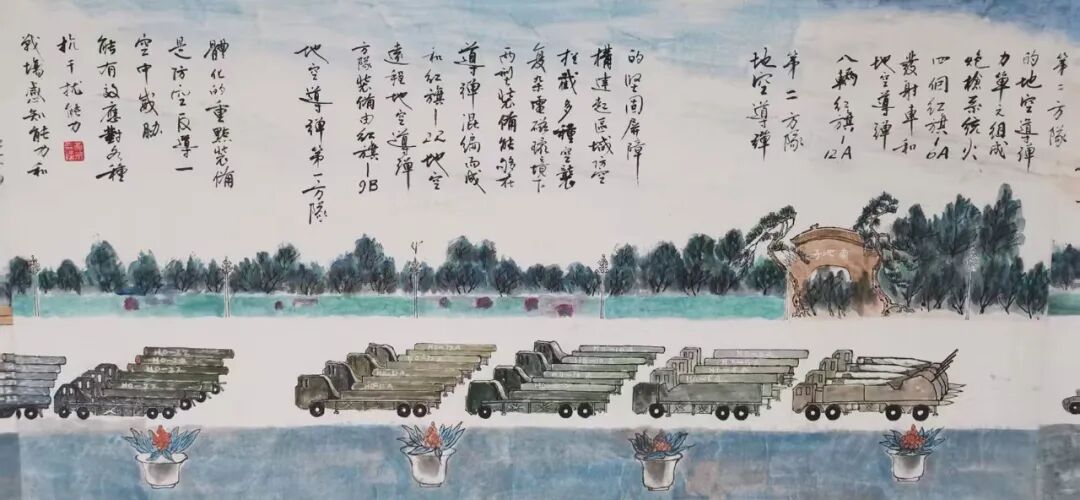 戰場感知能力和
抗干扰能力
能有效應對各種
空中威脅
是防空反導一
體化的重點裝備
地空導彈第一方隊
方隊裝備由紅旗-9B
遠程地空導彈
和紅旗-22地空
導彈混编而成
两型裝備能够在
复杂電磁環境下
拦截多種空襲
構建起區域防空
的堅固屏障
地空導彈
第二方隊
八輛紅旗-12A
地空導彈
發射車和
四個紅旗-6A
炮系統火
力單元組成
的地空導彈
第二方隊
南池子